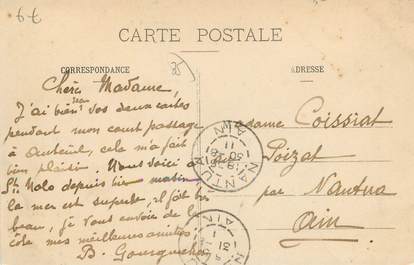 6€
CARTE POSTALE
CORRESPONDANCE
ADRESSE
Chère Madame,
J'ai bien reçu vos deux cartes
pendant mon court passage
à Auteuil, cela m'a fait
bien plaisir. Nous voici à
St Malo depuis hier matin,
la mer est superbe, il fait très
beau, je vous envoie de la
côte mes meilleures amitiés.
Madame Coissiat
Poizat
par Nantua
Ain
NANTUA
AIN
AIN